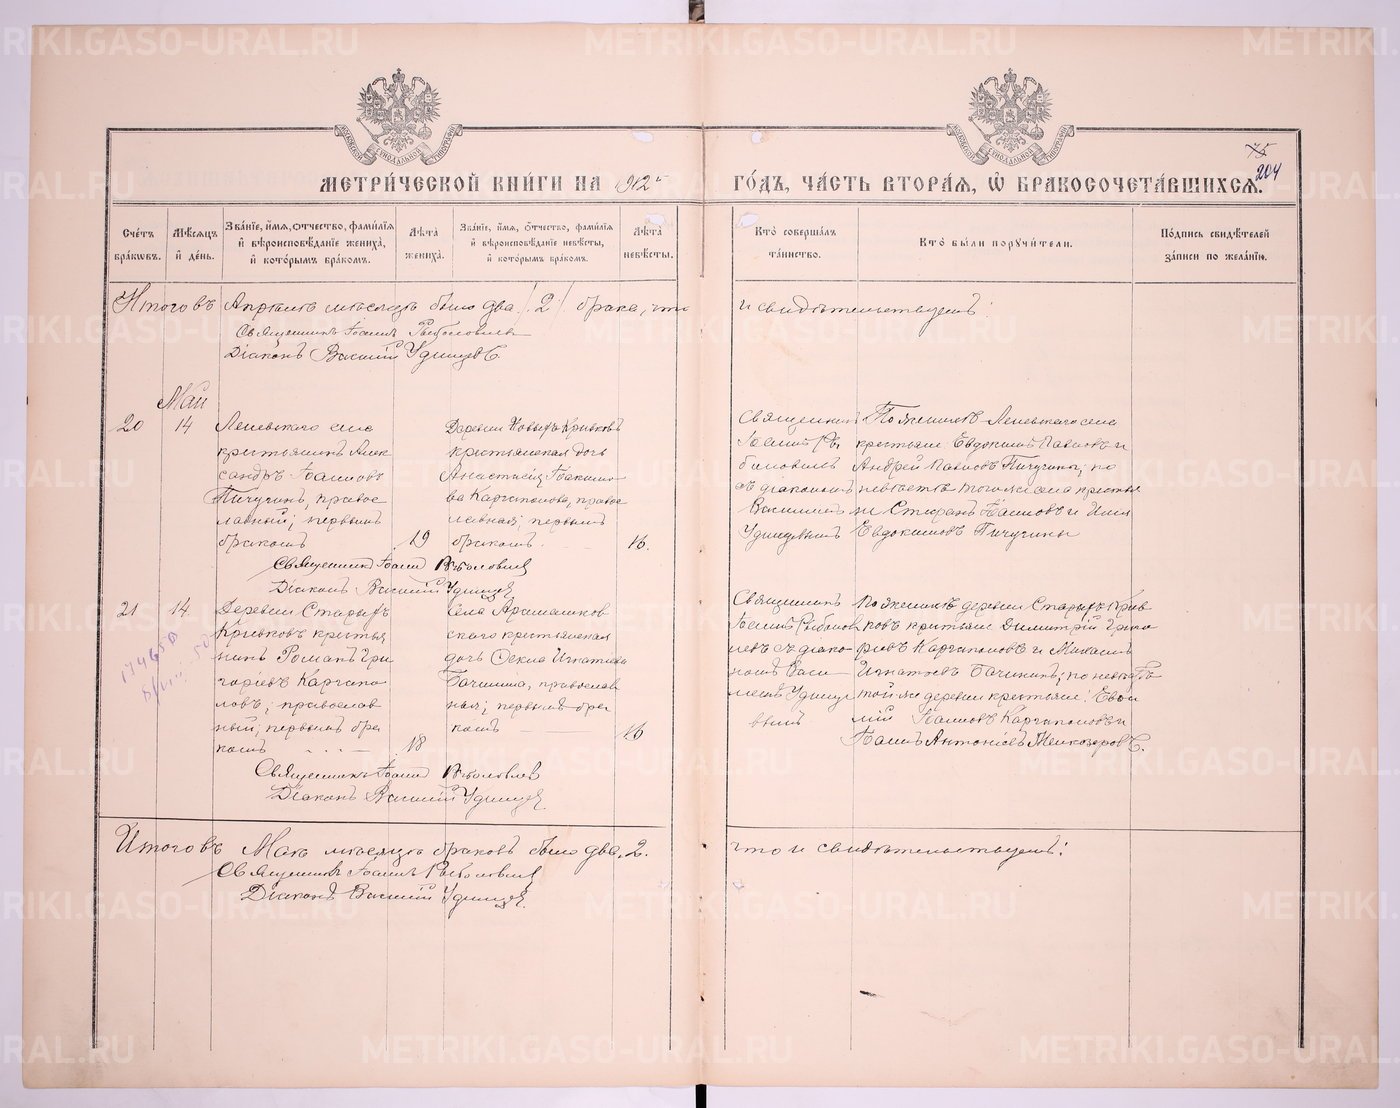 МЕТРИ́ЧЕСКОЙ КНИ́ГИ НА 1912 ГО́ДЪ, ЧА́СТЬ ВТОРА́Я, Ѡ БРАКОСОЧЕТА́ВШИХСЯ.
75
204
Сче́тъ бра́ковъ.
Мѣ́сяцъ и де́нь.
Зва́нїе, и́мя, о́тчество, фами́лїя и вѣроисповѣ́данїе жениха̀, и кото́рымъ бра́комъ.
Лѣ́та жениха̀.
Зва́нїе, и́мя, о́тчество, фами́лїя и вѣроисповѣ́данїе невѣ́сты, и кото́рымъ бра́комъ.
Лѣ́та невѣ́сты.
Кто̀ соверша́лъ та́инство.
Кто̀ бы́ли порꙋчи́тели.
По́дпись свидѣ́телей за́писи по жела́нїю.
Итого въ Апрѣлѣ мѣсяцѣ было два /2/ брака, что
и свидѣтельствуемъ:
Священникъ Іоаннъ Рыболовлевъ
Діаконъ Василій Удинцевъ.
Май
20
14
Леневскаго села
крестьянинъ Алек
сандръ Іоанновъ
Пичугинъ, правос
лавный; первымъ
бракомъ
19
Деревни Новыхъ Кривковъ
крестьянская дочь
Анастасія Іоакимо
ва Каргаполова, правос
лавная; первымъ
бракомъ.
16.
Священникъ
Іоаннъ Ры
боловлевъ
съ діакономъ
Василіемъ
Удинцевымъ
По женихѣ Леневскаго села
крестьяне Евдокимъ Павловъ и
Андрей Павловъ Пичугины; по
невѣстѣ того же села крестья
не Стефанъ Іоанновъ и Илія
Евдокимовъ Пичугины
Священникъ Іоаннъ Рыболовлев
Діаконъ Василій Удинцев
21
14
Деревни Старыхъ
Кривковъ кресть
нинъ Романъ Гри
горіевъ Каргапо
ловъ; православ
ный; первымъ бра
комъ
18
Села Арамашков
скаго крестьянская
дочь Ѳекла Игнатіева
Бачинина, православ
ная; первымъ бра
комъ
16
Священникъ
Іоаннъ Рыболов
левъ съ діако
номъ Васи
ліемъ Удинце
вымъ
По женихѣ деревни Старыхъ Крив
ковъ крестьяне Димитрій Григо
ріевъ Каргаполовъ и Михаилъ
Игнатіевъ Бачининъ; по невѣстѣ
той же деревни крестьяне:
Іоанновъ Каргаполовъ и
Іоаннъ Антоніевъ Мелкозеровъ.
Священникъ Іоаннъ Рыболовлев
Діаконъ Василій Удинцев
Итого въ Маѣ мѣсяцѣ браковъ было два. 2.
что и свидѣтельствуемъ:
Священникъ Іоаннъ Рыболовлев
Діаконъ Василій Удинцев.
METRIKI.GASO-URAL.RU